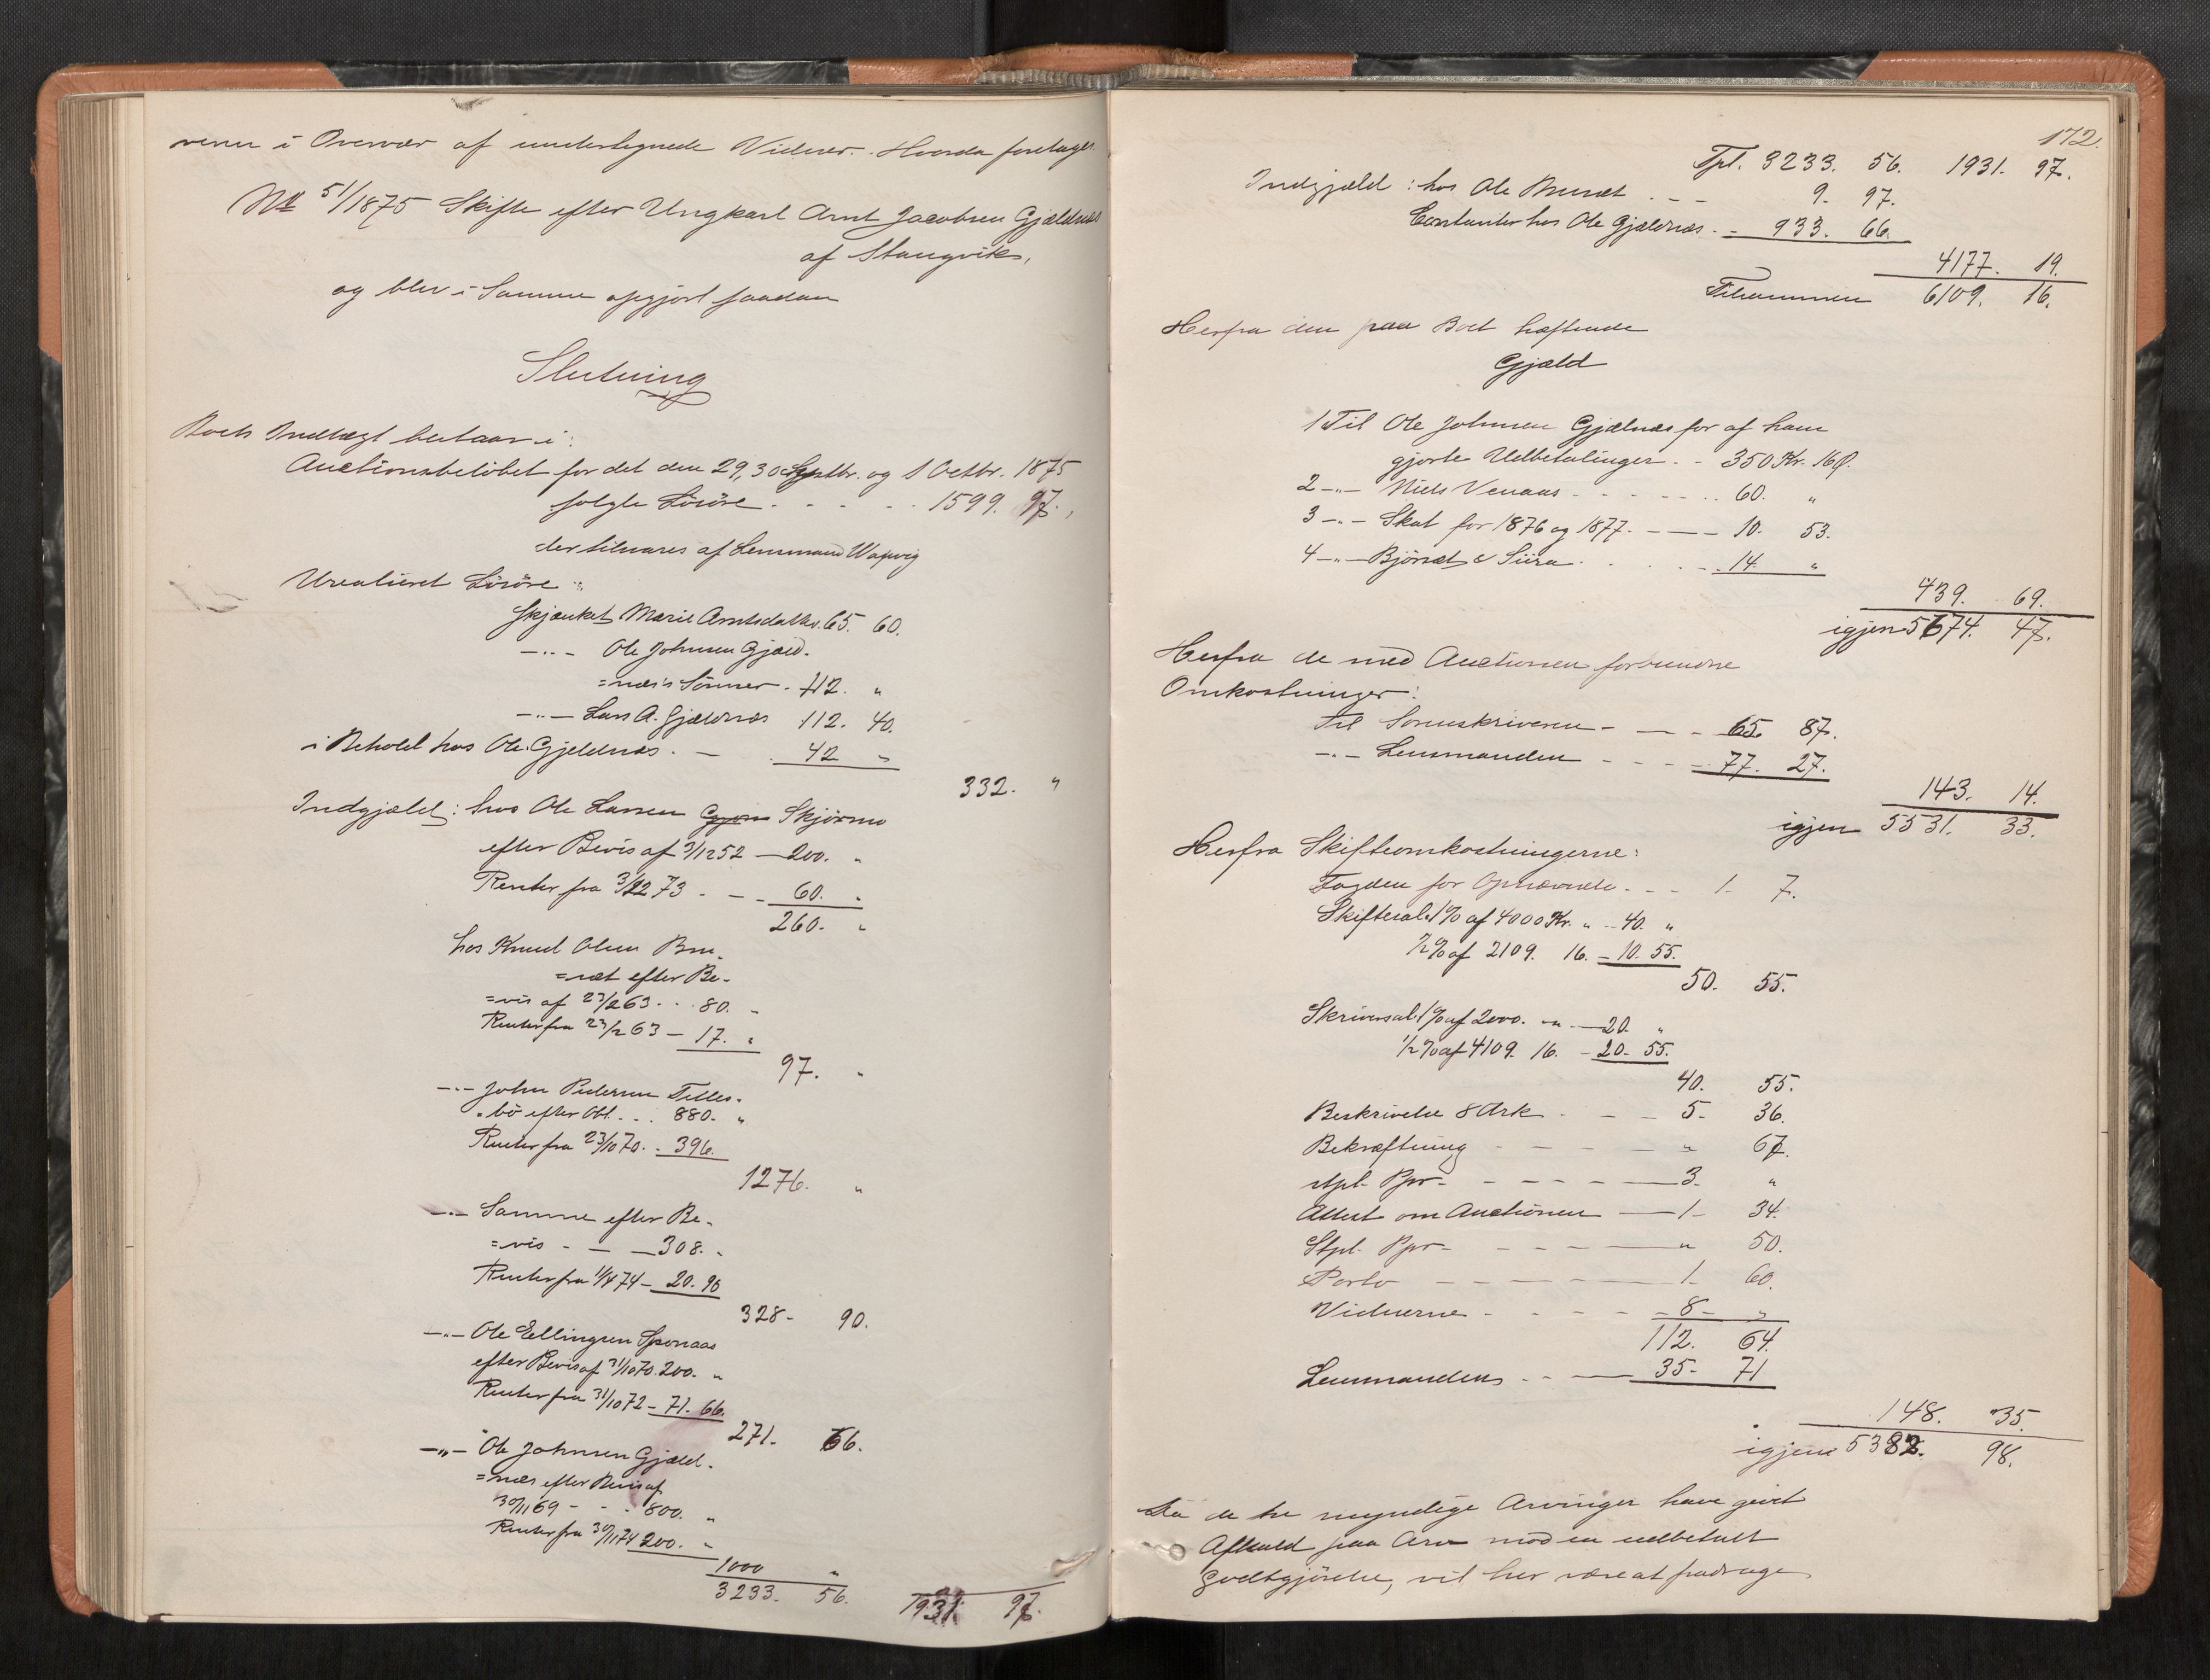 veren i Overvær af undertegnede Vidner. Hvorda foretages
No 51/1875 Skifte efter Ungkarl Arnt Jacobsen Gjeldnæs
af Stangvik,
og blev i Samme opgjort saadan
Slutning
Boets Indtægt bestaar i:
Auctionsbeløbet for det den 29, 30 Septbr. og 1 Octbr. 1875
solgte Løsøre . . . . . 1599. 97.
der tilsvares af Lensmand
Urealiseret Løsøre:
skjænket Marie Arntsdatter 65. 60.
—"— Ole Johnsen Gjeld-
=næs's Sønner . 112. "
—"— Lars A. Gjeldnæs 112. 40.
i Behold hos Ole Gjeldnæs . — . 42 "
332. "
Indgjæld: hos Ole Larsen Skjørmo
efter Bevis af 3/12 52 — 200. "
Renter fra 3/12 73 . — - 60. "
260. "
hos Knud Olsen Bru-
=næt efter Be-
=vis af 23/2 63 . . . 80. "
Renter fra 23/2 63 — 17. "
97. "
—"— John Pedersen Telles-
=bø efter Obl. . . 880. "
Renter fra 23/10 70 . . 396.
1276. "
—"— Samme efter Be-
=vis - — — 308. "
Renter fra 11/4 74 — 20. 90
328 - 90.
—"— Ole Ellingsen Sponaas
efter Bevis af 31/10 70. 200. "
Renter fra 31/10 72 — 71. 66.
271. 66.
—"— Ole Johnsen Gjeld-
=næs efter Bevis af
30/11 69 - - - 800. "
Renter fra 30/11 74 200. "
1000 "
3233. 56. 1931. 97.
172.
Tpt. 3233. 56. 1931. 97.
Indgjæld: hos Ole Brunæt . - - 9. 97.
Contanter hos Ole Gjeldnæs . - 933. 66.
4177. 19.
Tilsammen 6109. 16.
Herfra den paa Boet hæftende
Gjæld
1 Til Ole Johnsen Gjelnæs for af ham
gjorte Udbetalinger . - 350 Kr. 16 Ø.
2 —"— Niels Venaas . - - - - . . 60. "
3 —"— Skat for 1876 og 1877. — — — 10. 53.
4 —"— Bjørnæt & Siira . . . . - . 14. "
439. 69.
igjen 5674. 47.
Herfra de med Auctionen forbundne
Omkostninger:
Til Sorenskriveren - — — - 65. 87.
—"— Lensmanden - - - — 77. 27.
143. 14.
igjen 5531. 33.
Herfra Skifteomkostningerne:
Fogden for Opnævnelse . - - 1 - 7.
Skiftesal. 1% af 4000 Kr. " - 40. "
1/2% af 2109. 16. - 10. 55.
50. 55.
Skriversal. 1% af 2000. — " — 20. "
1/2% af 4109. 16. - 20. 55.
40. 55.
Beskrivelse 8 Ark . - — — 5 - 36.
Bekræftning - — — — — " 67.
stpl. Ppr - - — — — — 3. "
Attest om Auctionen — 1 - 34.
Stpl. Ppr - - — — — — " 50.
Porto — — — — — 1 - 60.
Vidnerne - . - - - - 8 - "
112. 64.
Lensmanden . - - — 35 - 71
148. 35
igjen 5382. 98.
Da de tre myndige Arvinger have givet
Afkald paa Arv mod en udbetalt
Godtgjørelse, vil her være at fradrage